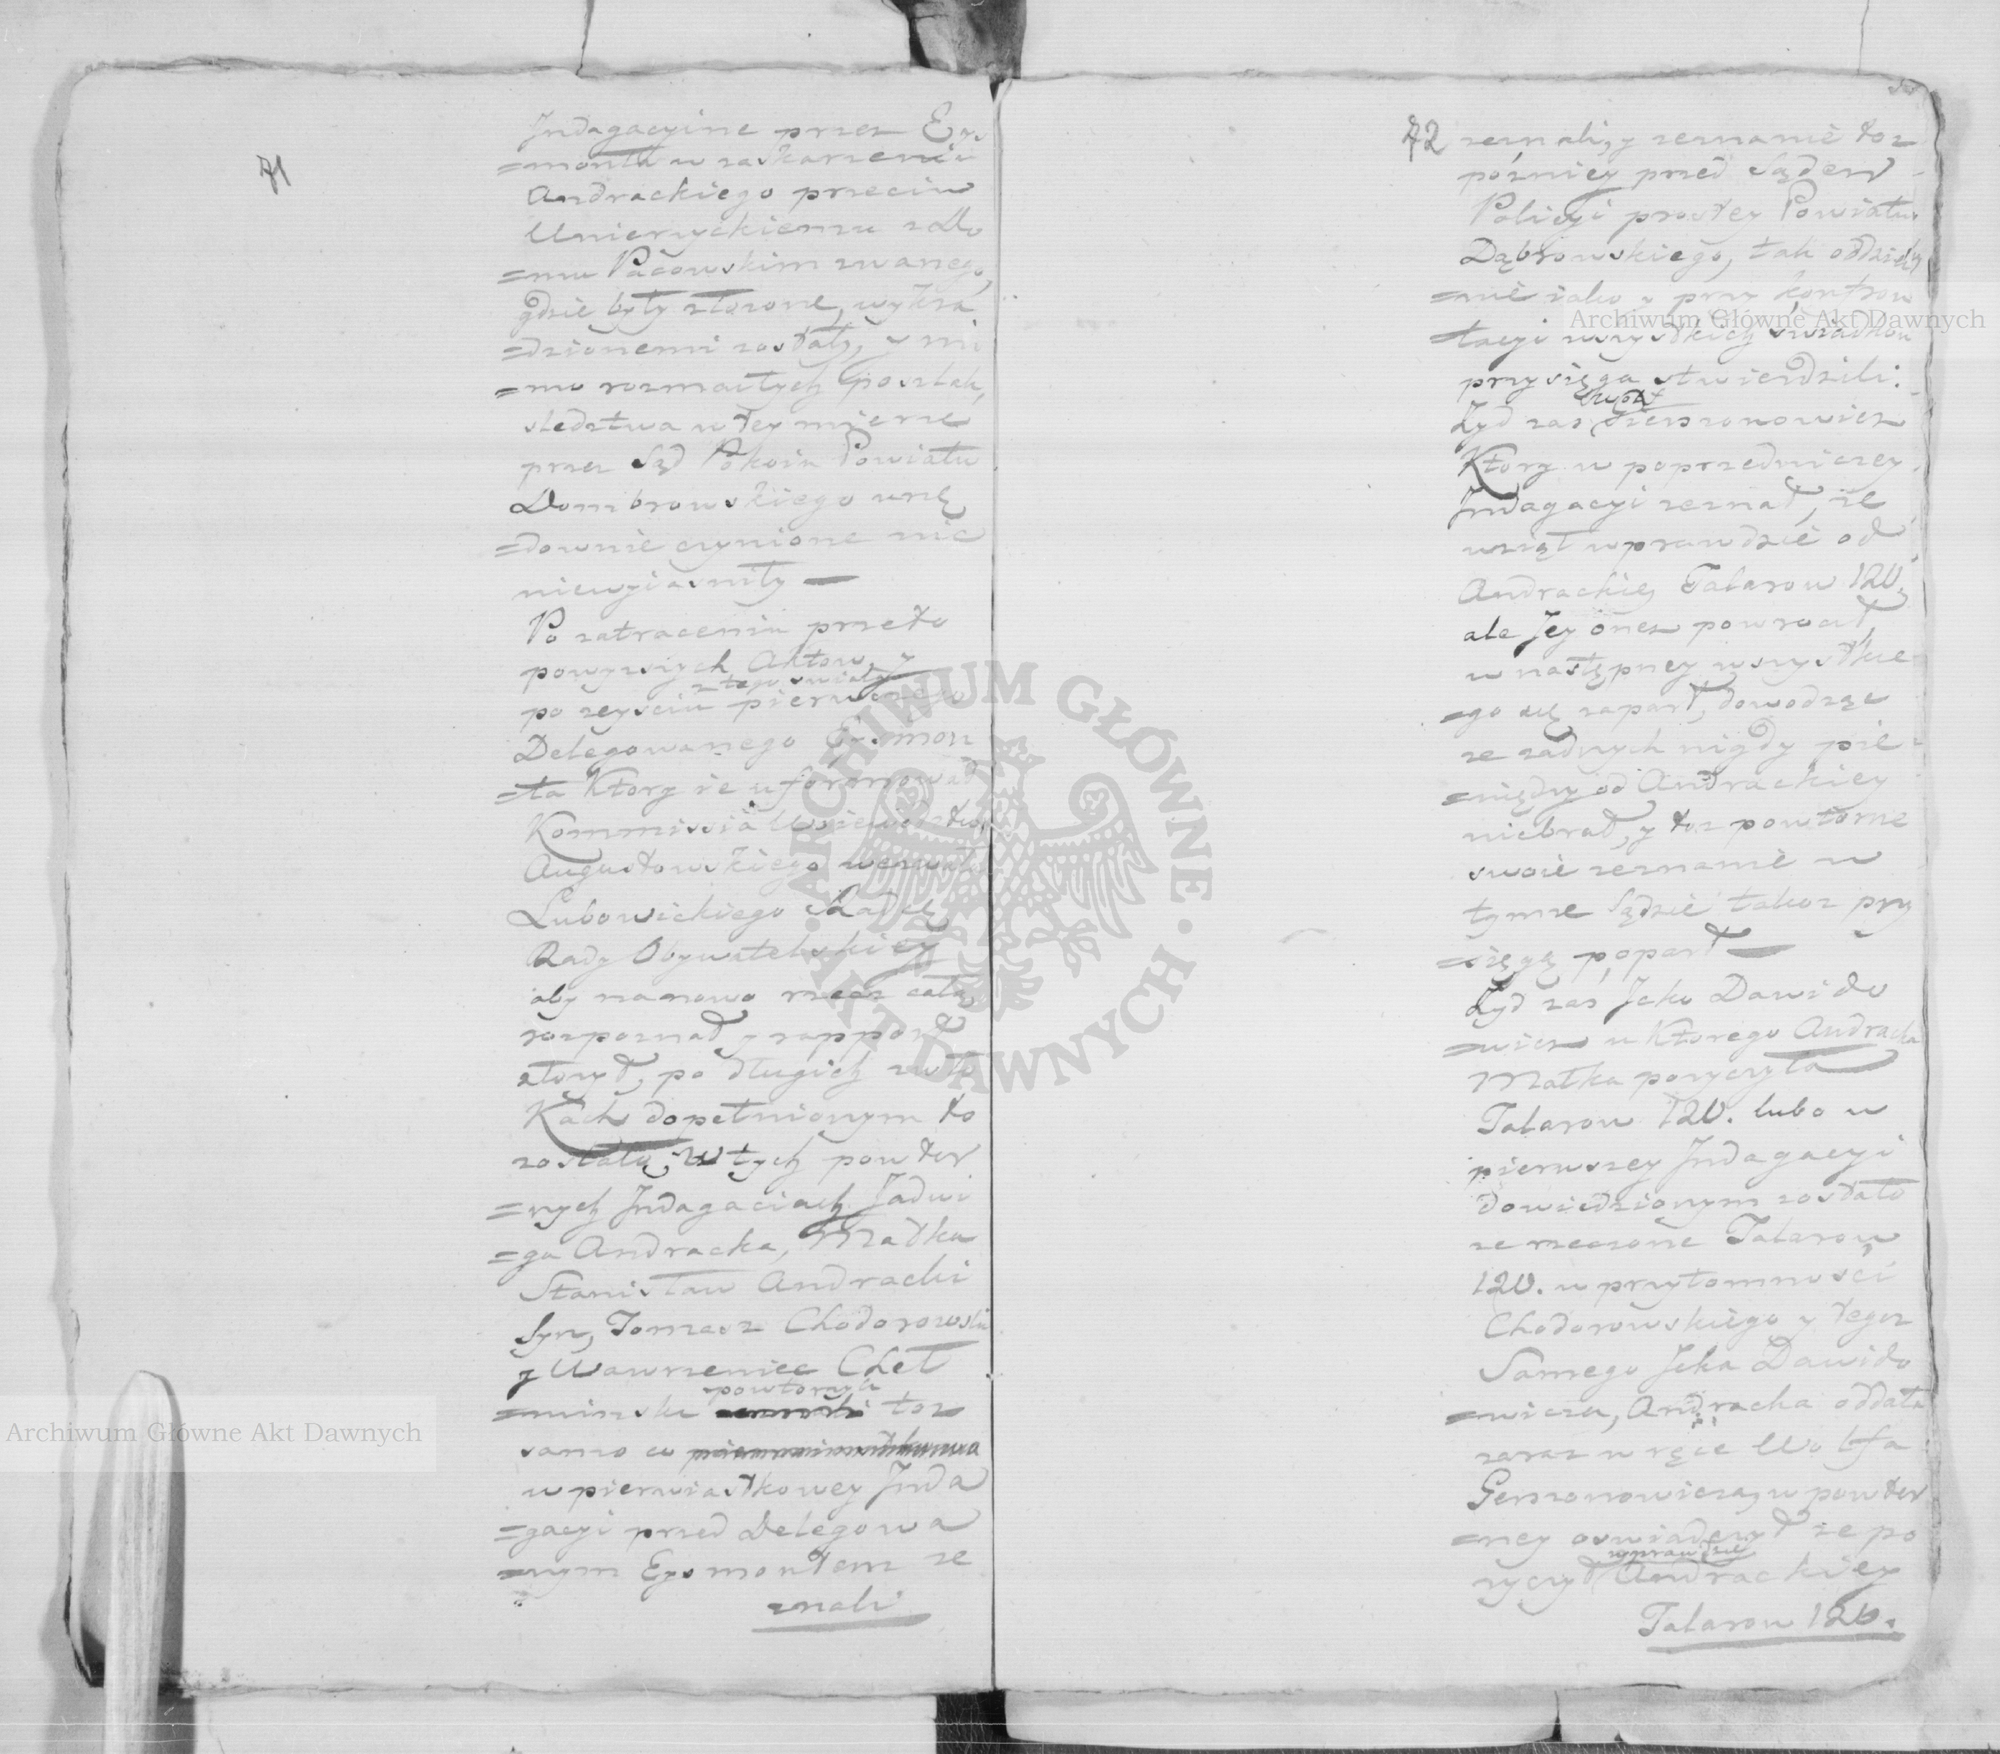 71
Indagacyine przez Eys
=monta w zaskarzenii
Andrackiego przeciw
Unierzyckiemu z Do
=mu Pacowskim zwanego,
gdzie były złozone, wykra
=dzionemi zostały, y mi
=mo rozmaitych poszlak,
sledztwa w tey mierze
przez Sąd Pokoiu Powiatu
Dombrowskiego urzę
=downie czynione nic
niewyiasniły —
Po zatraceniu przeto
powyzszych Aktow, y
z tego swiata
po zeysciu pierwszego
Delegowanego Eysmon
=ta Ktory ie uformował
Kommissia Woiewodztwa
Augustowskiego wezwała
Lubowickiego Radcę
Rady Obywatelskiey
aby nanowo rzecz całą
rozpoznał y rapport
złozył, po długich zwło
Kach dopełnionym to
zostało; W tych powtor
=nych Indagaciach Jadwi
=ga Andracka, Matka
Stanisław Andracki
Syn, Tomasz Chodorowski
y Wawrzeniec Cheł
powtornie
=minski toz
samo co
w pierwiastkowey Inda
=gacyi przed Delegowa
=nym Eysmontem ze
znali
72
zeznali, y zeznanie toz
pozniey przed Sądem
Policyi prostey Powiatu
Dąbrowskiego, tak oddziel
=nie iako y przy konfron
=tacyi wszystkich swiadkow
przysięgą stwierdzili.
Żyd zas Gierszonowicz
Ktory w poprzedniczey
Indagacyi zeznał, ze
wziął wprawdzie od
Andrackiey Talarow 120,
ale Jey onez powrocił,
w następney wszystkie
=go się zaparł, dowodząc
ze zadnych nigdy pie
=niędzy od Andrackiey
niebrał, y toz powtorne
swoie zeznanie w
tymze Sądzie takoz przy
=sięgą poparł —
Żyd zas Icko Dawido
=wicz u Ktorego Andracka
Matka pozyczyła
Talarow 120. lubo w
pierwszey Indagacyi
dowiedzionym zostało
ze rzeczone Talarow
120. w przytomnosci
Chodorowskiego y tegoz
Samego Icka Dawido
=wicza, Andracka oddała
zaraz w ręce Wolfa
Gerszonowicza, w powtor
=ney oswiadczył ze po
wprawdzie
zyczył Andrackiey
Talarow 120.
Archiwum Główne Akt Dawnych
Archiwum Główne Akt Dawnych
ARCHIWUM GŁÓWNE · AKT DAWNYCH ·